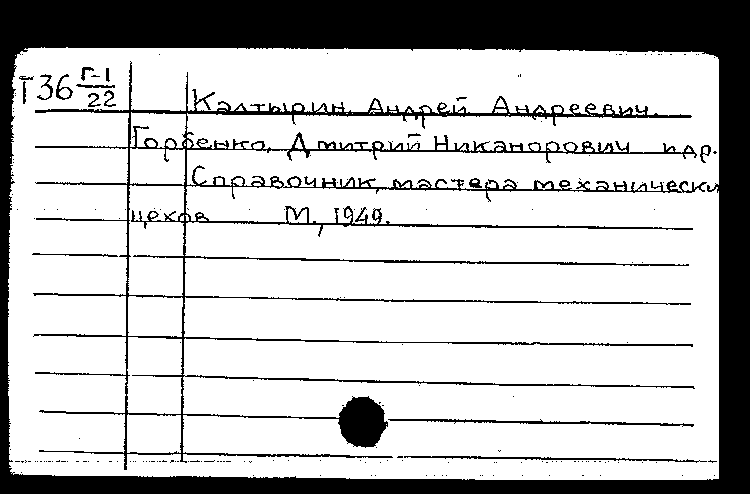 Т36 Г-1
22
Калтырин, Андрей Андреевич.
Горбенко, Дмитрий Никанорович и др.
Справочник мастера механически
цехов М., 1949.